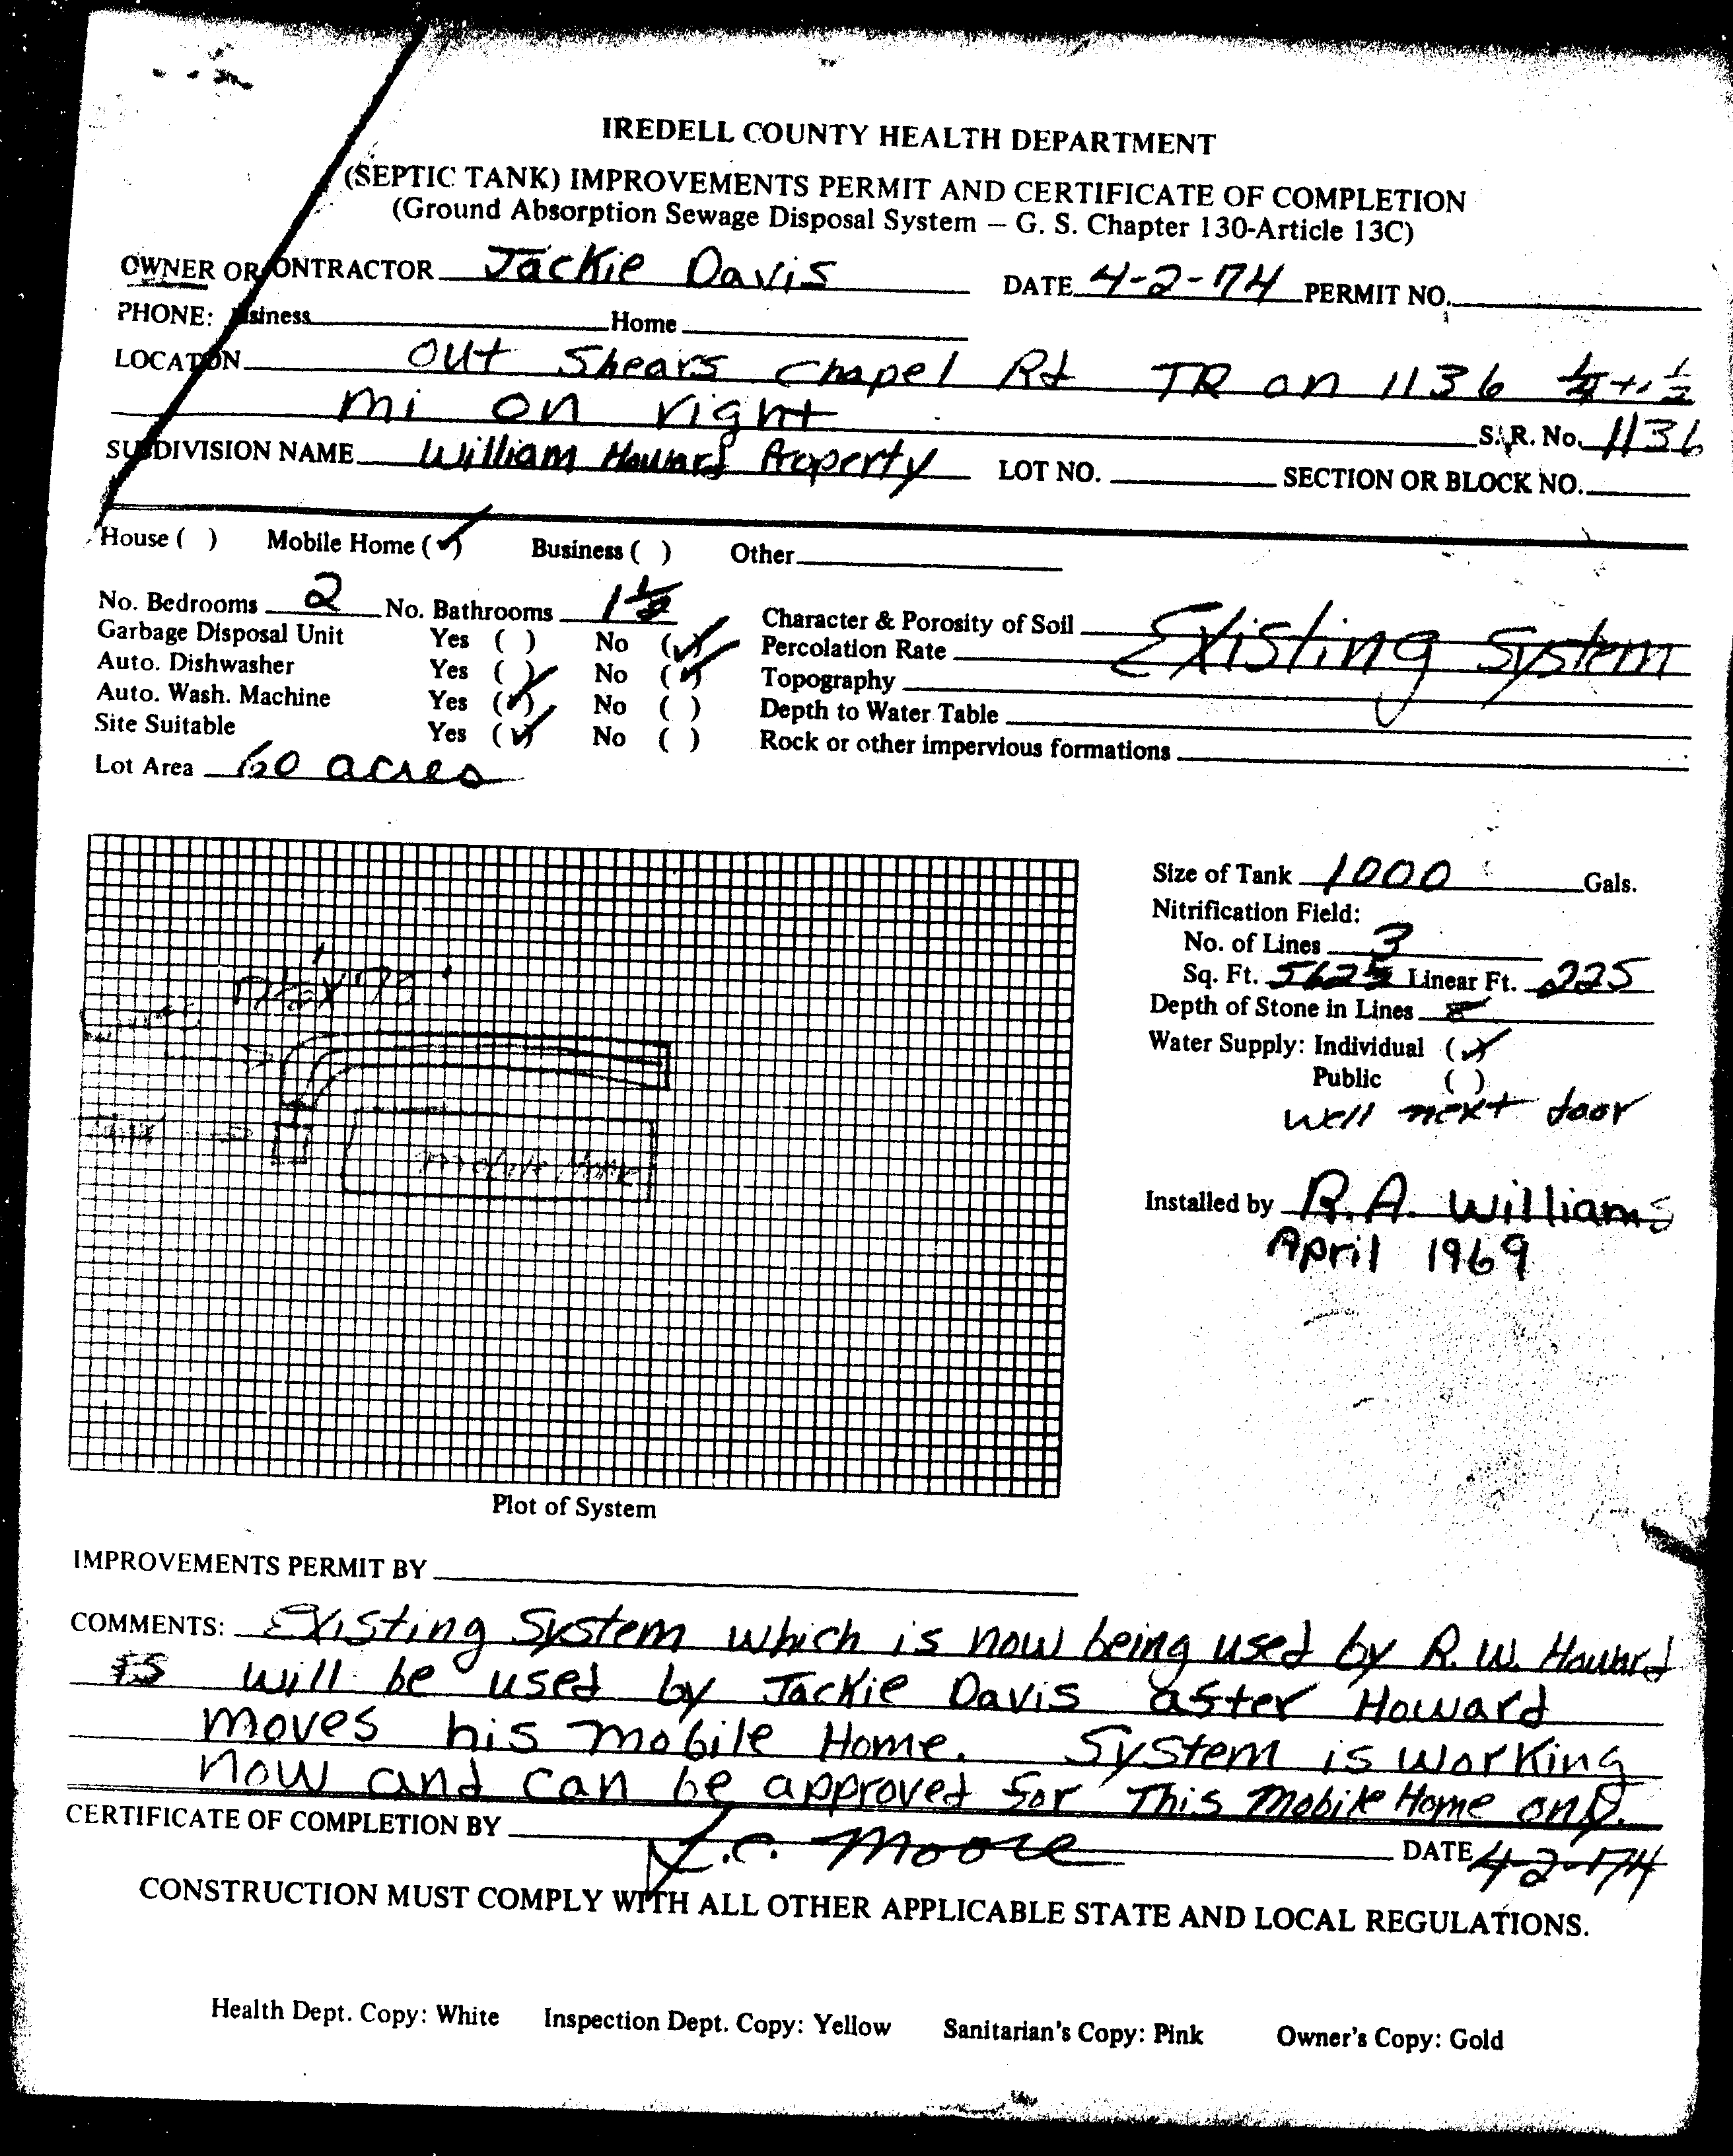 IREDELL COUNTY HEALTH DEPARTMENT
(SEPTIC TANK) IMPROVEMENTS PERMIT AND CERTIFICATE OF COMPLETION
(Ground Absorption Sewage Disposal System — G. S. Chapter 130-Article 13C)
OWNER OR CONTRACTOR Jackie Davis DATE 4-2-74 PERMIT NO.
PHONE: Business Home
LOCATION out Shears Chapel Rd TR on 1136 1/4 to 1/2
mi on right S.R. No. 1136
SUBDIVISION NAME William Howard Property LOT NO. SECTION OR BLOCK NO.
House ( ) Mobile Home (✓) Business ( ) Other
No. Bedrooms 2 No. Bathrooms 1 1/2 Character & Porosity of Soil Existing System
Garbage Disposal Unit Yes ( ) No (✓) Percolation Rate
Auto. Dishwasher Yes ( ) No (✓) Topography
Auto. Wash. Machine Yes (✓) No ( ) Depth to Water Table
Site Suitable Yes (✓) No ( ) Rock or other impervious formations
Lot Area 60 acres
Size of Tank 1000 Gals.
Nitrification Field:
No. of Lines 3
Sq. Ft. Linear Ft. 225
Depth of Stone in Lines
Water Supply: Individual (✓)
Public ( )
well next door
Installed by R.A. Williams
April 1969
mobile Home
Plot of System
IMPROVEMENTS PERMIT BY
COMMENTS: Existing System which is now being used by R. W. Howard
will be used by Jackie Davis after Howard
moves his mobile Home. System is working
now and can be approved for This Mobile Home only.
CERTIFICATE OF COMPLETION BY L.C. Moore DATE 4-2-74
CONSTRUCTION MUST COMPLY WITH ALL OTHER APPLICABLE STATE AND LOCAL REGULATIONS.
Health Dept. Copy: White Inspection Dept. Copy: Yellow Sanitarian's Copy: Pink Owner's Copy: Gold